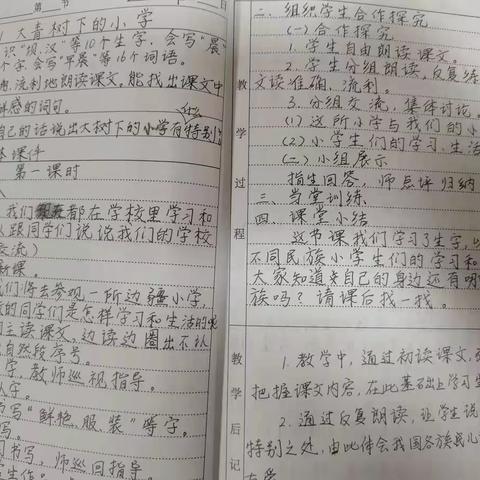 第 节
1 大青树下的小学
识“坝、汉”等10个生字，会写“晨”
个字，会写“早晨”等16个词语。
流利地朗读课文，能找出课文中
鲜感的词句。
自己的话说出大树下的小学有什么特别
课件
第一课时
我们都在学校里学习和
跟同学们说说我们的学校
交流）
新课。
们将去参观一所边疆小学，
的同学们是怎样学习和生活的呢
读课文，边读边圈出不认
自然段序号。
字，教师巡视指导。
认字。
书写“鲜艳、服、装”等字。
写。
书写，师巡回指导。
教
学
过
程
二、组织学生合作探究
（一）合作探究
1. 学生自由朗读课文。
2. 学生分组朗读，反复练
文读准确、流利。
3. 分组交流，集体讨论。
(1) 这所小学与我们的小
(2) 小学生们的学习、生活
（二）小组展示
指生回答，师点评归纳
三、当堂训练
四、课堂小结
这节课我们学习了生字，
不同民族小学生们的学习和
大家知道来自己的身边还有哪
族吗？请课后找一找。
教
学
后
记
1. 教学中，通过初读课文，
把握课文内容，在此基础上学习生
2. 通过反复朗读，让学生说
特别之处，由此体会我国各族儿